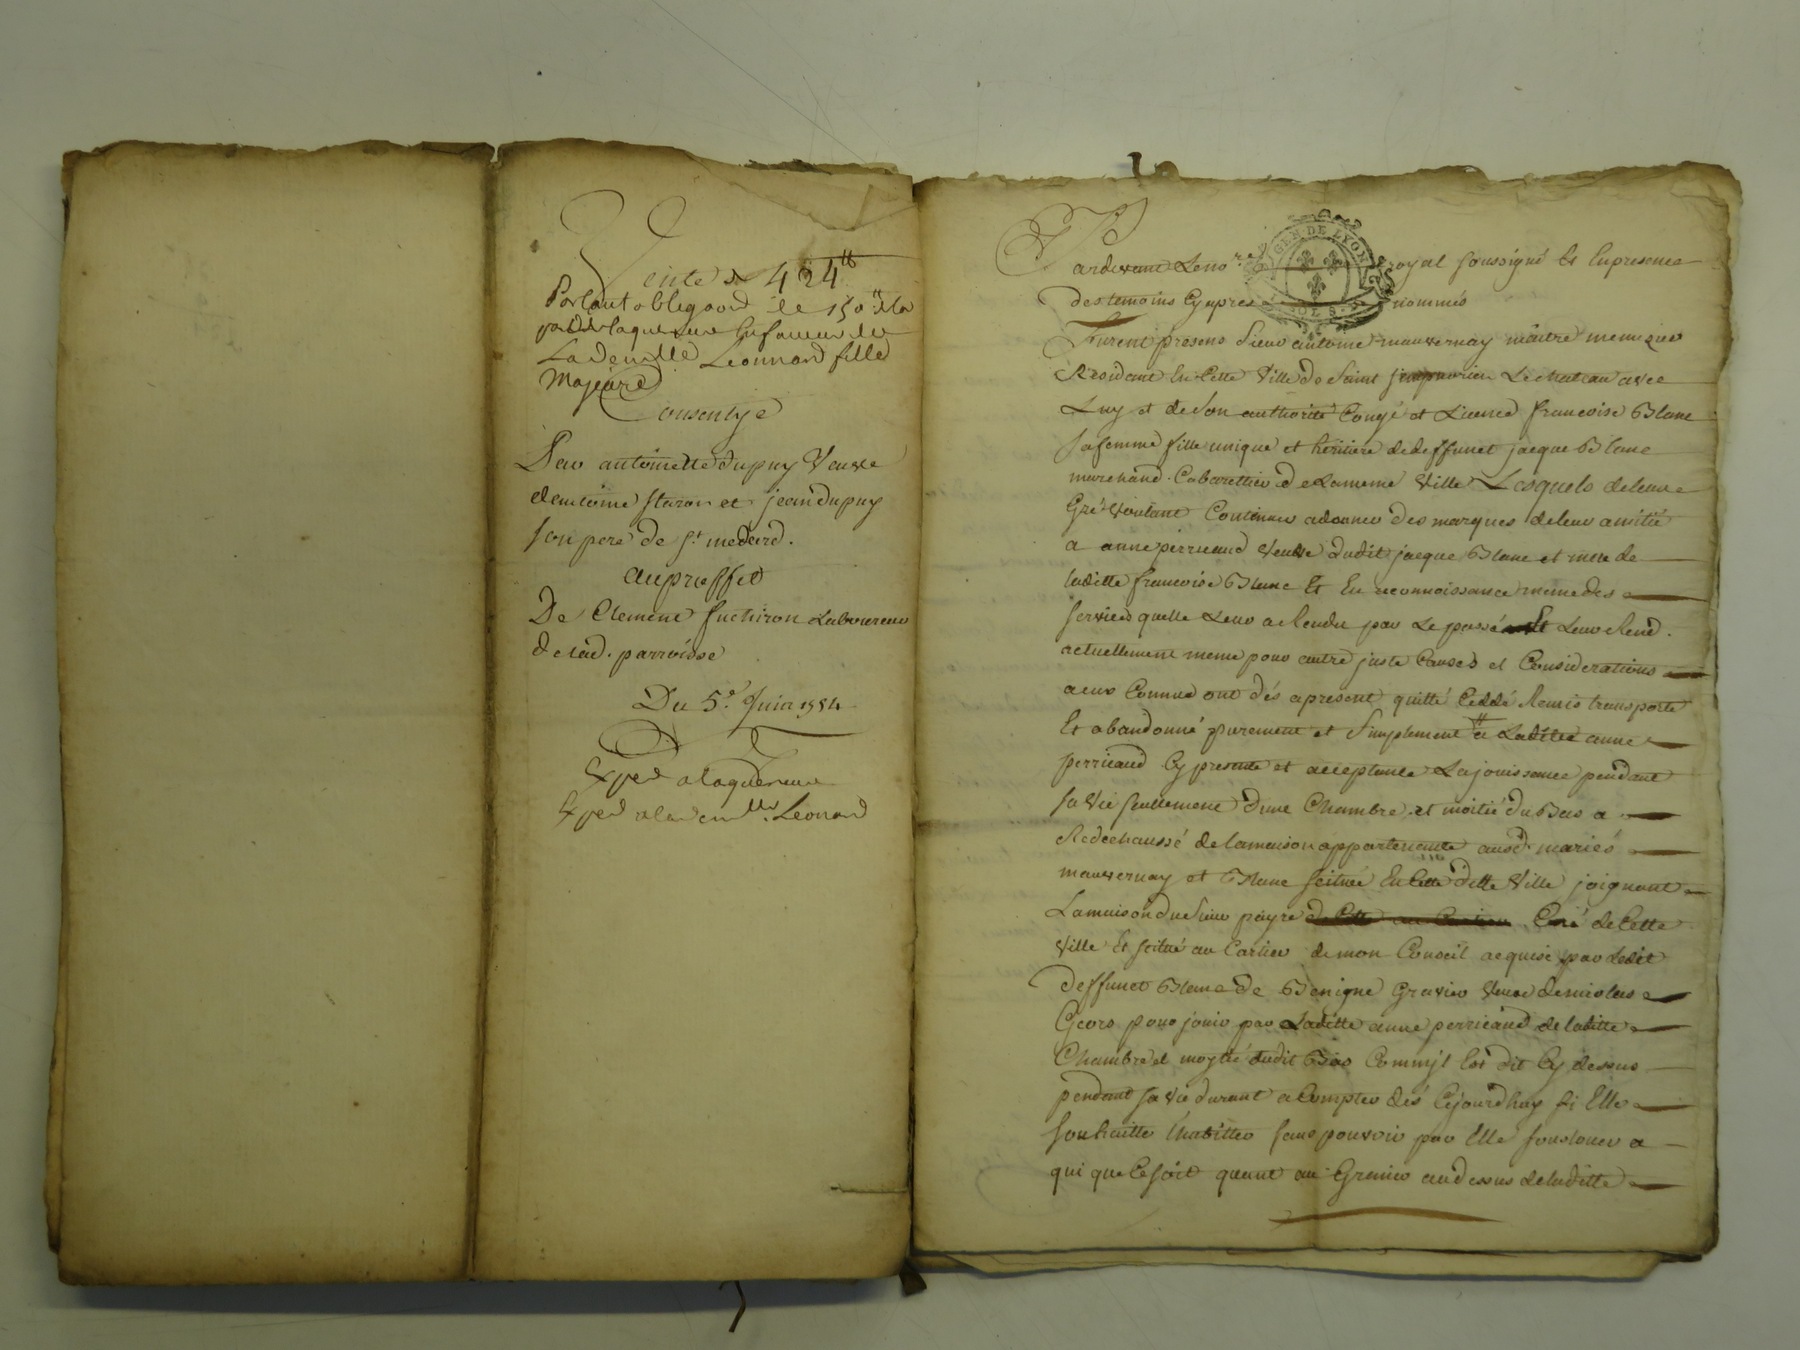 Vente de 424tt
Portant obligaõn de 150tt de la
part de laquereur En faveur de
La demelle Leonnard fille
Majeure
Consentye
Par antoinette dupuy Veuve
dantoine staron et jean dupuy
son pere de st. medard.
au proffit
De Clement fuchiron Laboureur
de lad. parroisse
Du 5e. Juin 1784
Exped a laquereur
Exped a la demlle. Leonard
Pardevant Le nore. royal soussigné Et En presence
des temoins Cy apres nommés
Furent presens sieur antoine mauvernay maitre menuzier
Residant En Cette Ville de Saint simphorien Le chateau avec
Luy et de son authorité Congé et Licence francoise Blanc
sa femme fille unique et heritiere de deffunct jacque Blanc
marchand Cabarettier de La meme Ville Lesquels de leur
Gré Voulant Continuer a donner des marques de leur amitié
a anne perricaud Veuve dudit jacque Blanc et mere de
laditte francoise Blanc Et En reconnoissance meme des
services quelle Leur a Rendu par Le passé Et Leur Rend.
actuellement meme pour autre juste Causes et Considerations
a eux Connue ont dés apresent quitté Ceddé Remis transporté
Et abandonné purement et simplement a Laditte anne
perricaud Cy presente et acceptante La jouissance pendant
sa vie seullement dune Chambre et moitié du Bas a
Redechaussé de la maison appartenante ausd. mariés
mauvernay et Blanc scituée En Cette ditte Ville joignant
La maison du sieur payre Curé de Cette
Ville Et scitué au Cartier de mon Conseil acquise par Ledit
deffunct Blanc de Benigne Gravier Veuve de nicolas
Geors pour jouir par Laditte anne perricaud de laditte
Chambre et moytié dudit Bas Commjl Est dit Cy dessus
pendant sa vie durant a Compter dés Cejourdhuy si Elle
souhaitte lhabitter sans pouvoir par Elle souslouer a
qui que Ce soit quant au Grenier au dessus de laditte
GEN DE LYON
SOLS